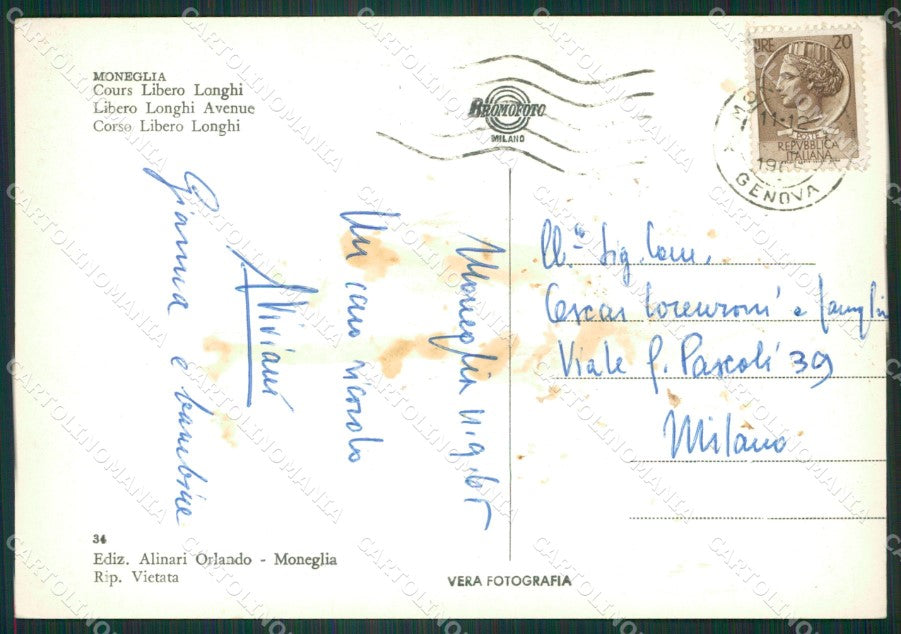 MONEGLIA
Cours Libero Longhi
Libero Longhi Avenue
Corso Libero Longhi
BROMOFOTO
MILANO
LIRE 20
POSTE
REPVBBLICA
ITALIANA
11-12
GENOVA
Moneglia
Un caro ricordo
Viviani
Gianna e bambine
Ill.mo Sig. Com.
Oscar Lorenzoni e famiglia
Viale G. Pascoli 39
Milano
34
Ediz. Alinari Orlando - Moneglia
Rip. Vietata
VERA FOTOGRAFIA
CARTOLINOMANIA